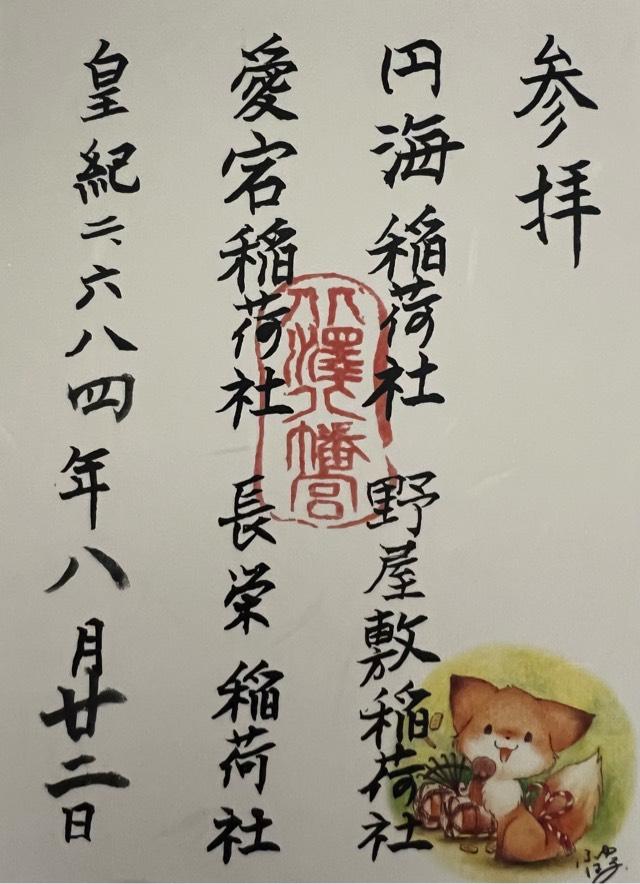 参拝
円海稲荷社 野屋敷稲荷社
愛宕稲荷社 長栄稲荷社
皇紀二、六八四年八月廿二日
澤八幡宮